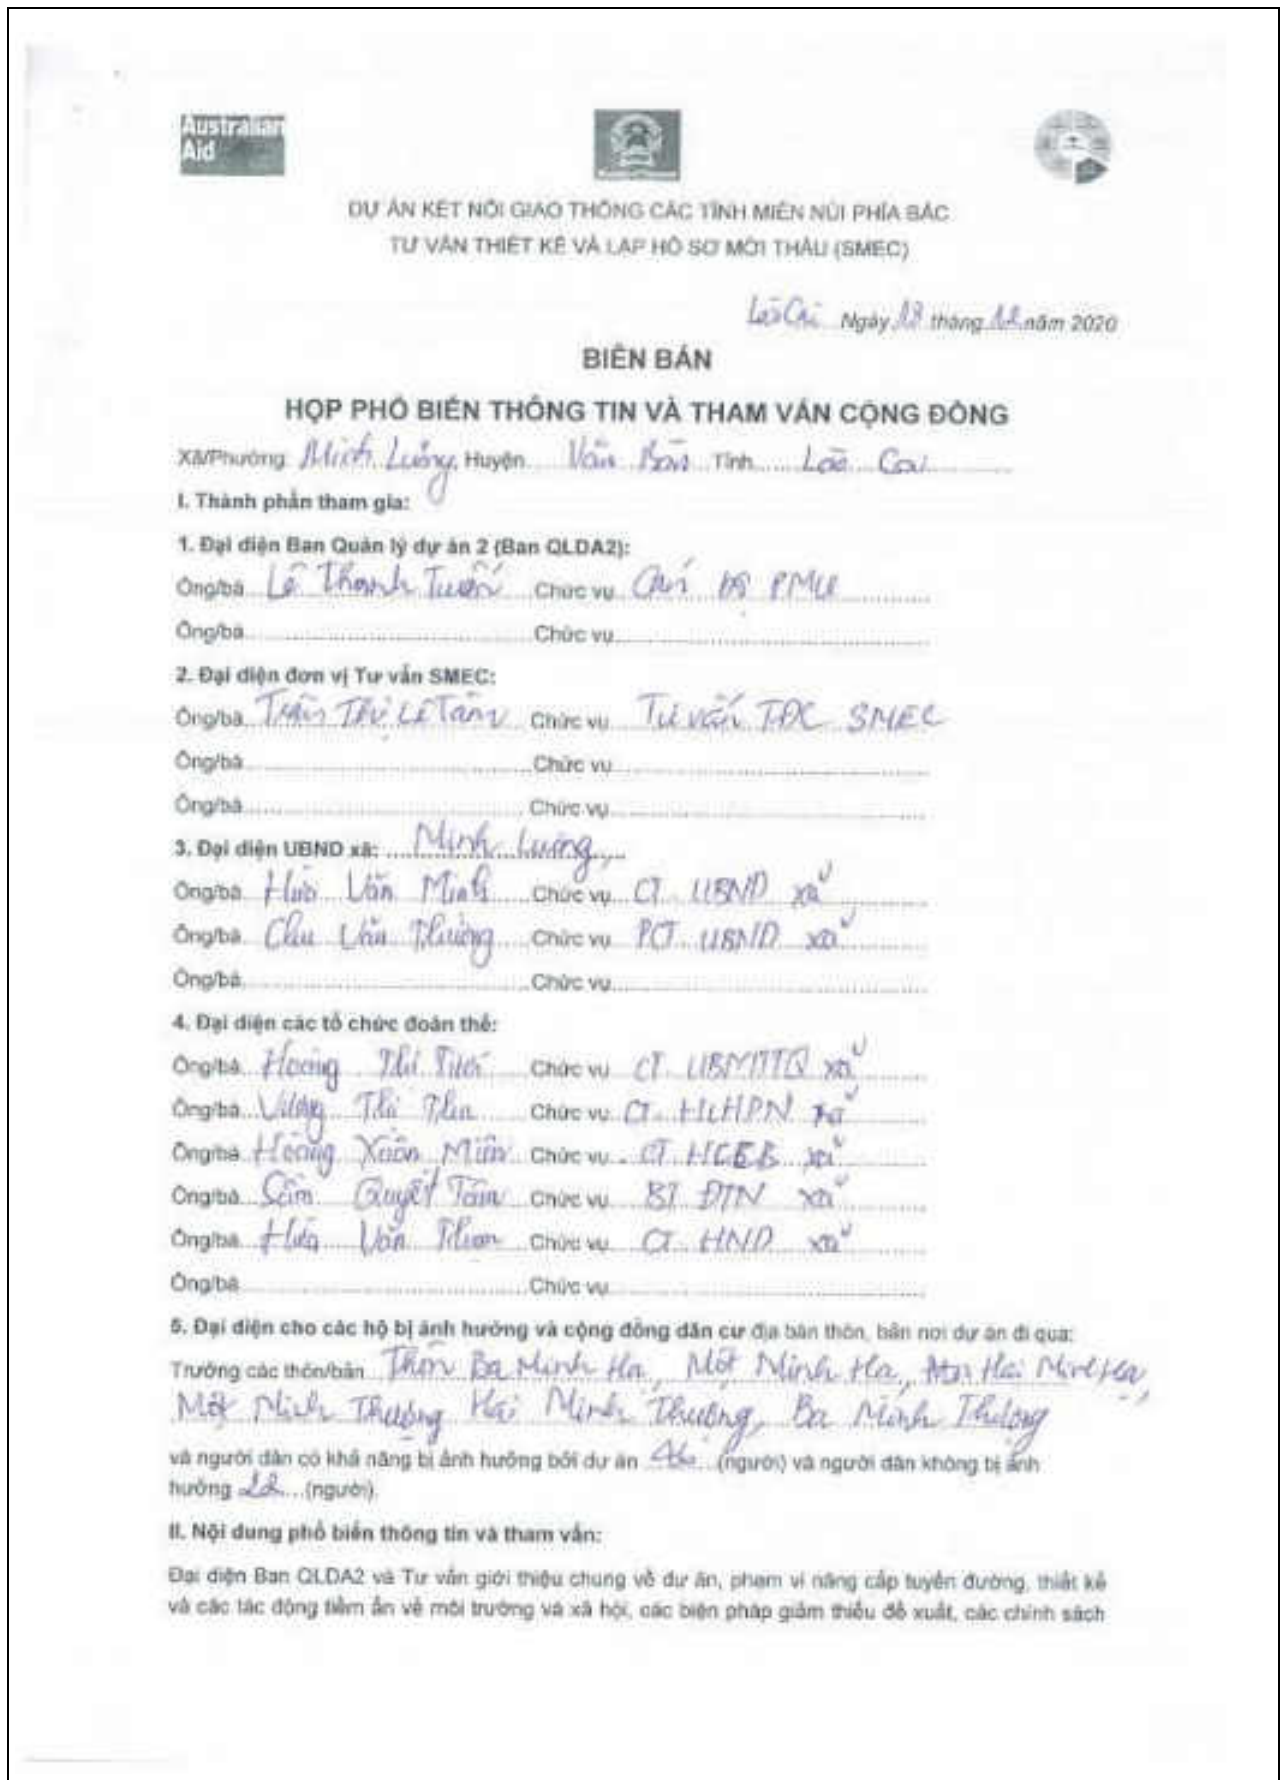 Australian
Aid
DỰ ÁN KẾT NỐI GIAO THÔNG CÁC TỈNH MIỀN NÚI PHÍA BẮC
TƯ VẤN THIẾT KẾ VÀ LẬP HỒ SƠ MỜI THẦU (SMEC)
Lào Cai Ngày 18 tháng 12 năm 2020
BIÊN BẢN
HỌP PHỔ BIẾN THÔNG TIN VÀ THAM VẤN CỘNG ĐỒNG
Xã/Phường Minh Lương Huyện Văn Bàn Tỉnh Lào Cai
I. Thành phần tham gia:
1. Đại diện Ban Quản lý dự án 2 (Ban QLDA2):
Ông/bà Lê Thanh Tuấn Chức vụ Cán bộ PMU
Ông/bà Chức vụ
2. Đại diện đơn vị Tư vấn SMEC:
Ông/bà Trần Thị Lê Tâm Chức vụ Tư vấn TĐC SMEC
Ông/bà Chức vụ
Ông/bà Chức vụ
3. Đại diện UBND xã: Minh Lương
Ông/bà Văn Minh Chức vụ CT UBND xã
Ông/bà Chu Văn Chức vụ PCT UBND xã
Ông/bà Chức vụ
4. Đại diện các tổ chức đoàn thể:
Ông/bà Hoàng Thị Chức vụ CT UBMTTQ xã
Ông/bà Vương Thị Chức vụ CT HLHPN xã
Ông/bà Hoàng Xuân Chức vụ CT xã
Ông/bà Sầm Quyết Tâm Chức vụ BT ĐTN xã
Ông/bà Hứa Văn Chức vụ CT HND xã
Ông/bà Chức vụ
5. Đại diện cho các hộ bị ảnh hưởng và cộng đồng dân cư địa bàn thôn, bản nơi dự án đi qua:
Trưởng các thôn/bản Thôn Ba Minh Hạ, Một Minh Hạ, Hai Minh Hạ,
Một Minh Thượng Hai Minh Thượng, Ba Minh Thượng
và người dân có khả năng bị ảnh hưởng bởi dự án (người) và người dân không bị ảnh
hưởng 22 (người).
II. Nội dung phổ biến thông tin và tham vấn:
Đại diện Ban QLDA2 và Tư vấn giới thiệu chung về dự án, phạm vi nâng cấp tuyến đường, thiết kế
và các tác động tiềm ẩn về môi trường và xã hội, các biện pháp giảm thiểu đề xuất, các chính sách